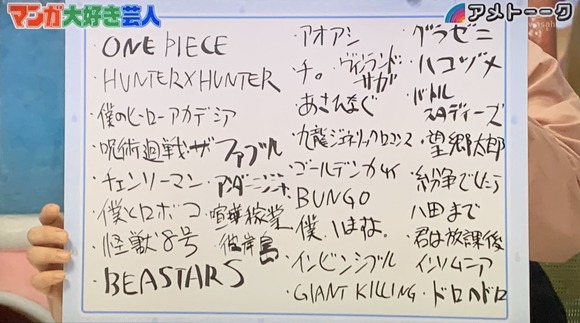 マンガ大好き芸人
アメトーーク
ONE PIECE
・HUNTER×HUNTER
・僕のヒーローアカデミア
・呪術廻戦 ・ザ ファブル
・チェンソーマン ・アンダーニンジャ
・僕とロボコ ・喧嘩稼業
・怪獣8号 ・彼岸島
・BEASTARS
・アオアシ
・チ。 ・ヴィンランド
サガ
・あさひなぐ
・九龍ジェネリックロマンス
・ゴールデンカムイ
・BUNGO
・僕、はまじ。
・インビンシブル
・GIANT KILLING
・グラゼニ
・ハコヅメ
・バトル
スタディーズ
・望郷太郎
・紛争でしたら
八田まで
・君は放課後
インソムニア
・ドロヘドロ